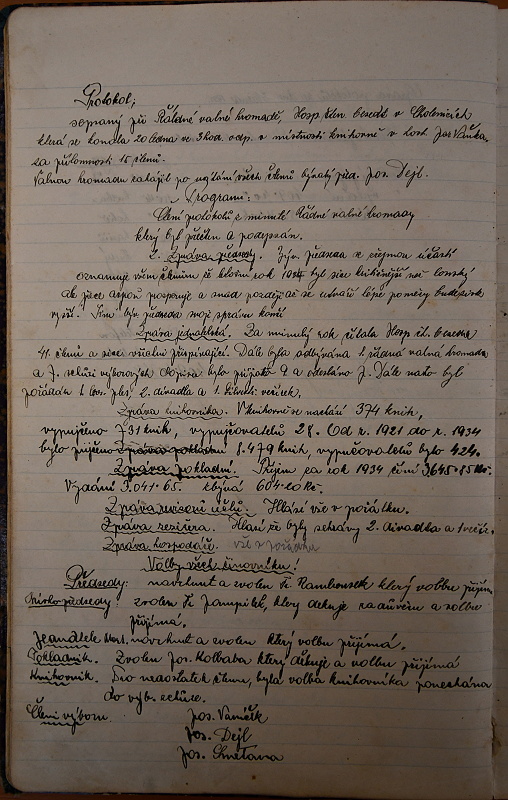 Protokol;
sepsaný při Řádné valné hromadě, Hosp. čten. besedy v Cholenicích
která se konala 20 ledna ve 3 hod. odp. v místnosti knihovně v host. Jar.
za přítomnosti 15 členů.
Valnou hromadu zahájil po uvítání všech členů bývalý před. Jos. Dejl.
Program:
Čtení protokolů z minulé Řádné valné hromady
který byl přečten a podepsán.
2. Zpráva předsedy.
oznamuje všem členům že letošní rok 1934 byl sice kritičtější než loňský
ale přece aspoň a snad později až se utváří lépe poměry bude
předseda svoji zprávu končí
Zpráva jednatelská. Za minulý rok čítala Hosp. čt. beseda
41 členů a sice: všichni přispívající. Dále byla odbývána 1. řádná valná hromada
a 7. schůzí výborových dopisů bylo přijato 9 a odesláno 7. Dále nato byl
pořádán 1 ples, 2. divadla a 1. Silvestr. večírek.
Zpráva knihovníka. V knihovně se nachází 374 knih,
vypůjčeno 731 knih, vypůjčovatelů 28. Od r. 1921 do r. 1934
bylo půjčeno 8.479 knih, vypůjčovatelů bylo 424.
Zpráva pokladní. Příjem za rok 1934 činí 3645.85 Kč.
Vydání 3.041.65. Zbývá 604.20 Kč.
Zpráva revisorů účtů. Hlásí vše v pořádku.
Zpráva revisora. Hlásí že byly sehrány 2. divadla a 1 večír.
Zpráva hospodáře. vše v pořádku
Volby všech činovníků!
Předsedy: navrhnut a zvolen Fr. Rambousek který volbu přijím
Místopředsedy: zvolen Fr. který děkuje za důvěru a volbu
přijímá.
Jednatele navrhnut a zvolen který volbu přijímá.
Pokladník. Zvolen Jos. Kolbaba který děkuje a volbu přijímá
Knihovník. Pro nedostatek členů, byla volba knihovníka ponechána
do výb. schůze.
Členi výboru Jos. Vaníček
Jos. Dejl
Jos. Smetana